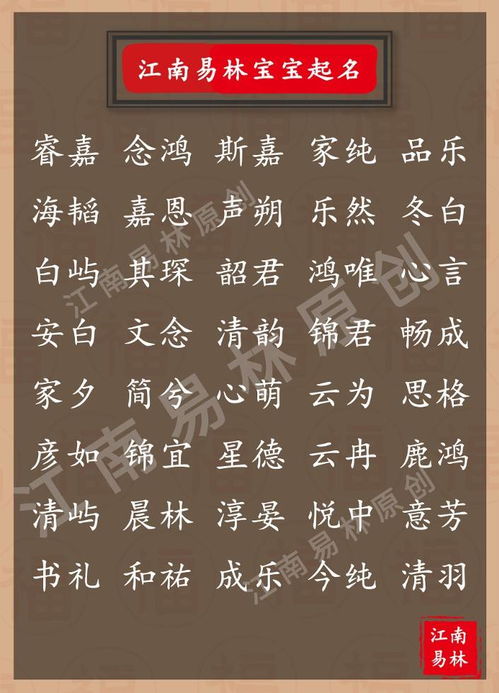 江南易林宝宝起名
睿嘉 念鸿 斯嘉 家纯 品乐
海韬 嘉恩 声朔 乐然 冬白
白屿 其琛 韶君 鸿唯 心言
安白 文念 清韵 锦君 畅成
家夕 简兮 心萌 云为 思格
彦如 锦宜 星德 云冉 鹿鸿
清屿 晨林 淳晏 悦中 意芳
书礼 和祐 成乐 今纯 清羽
江南易林原创
江南易林原创
江南易林原创
江南
易林